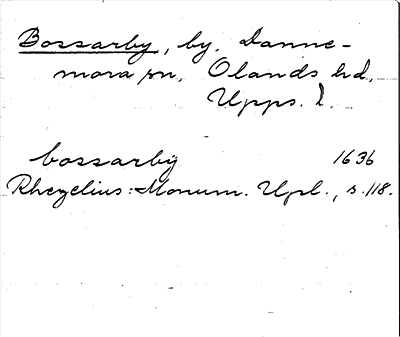 Bossarby, by. Danne-
mora sn, Olands hd,
Upps. l.
bossarbÿ 1636
Rhezelius: Monum. Upl., s. 118.